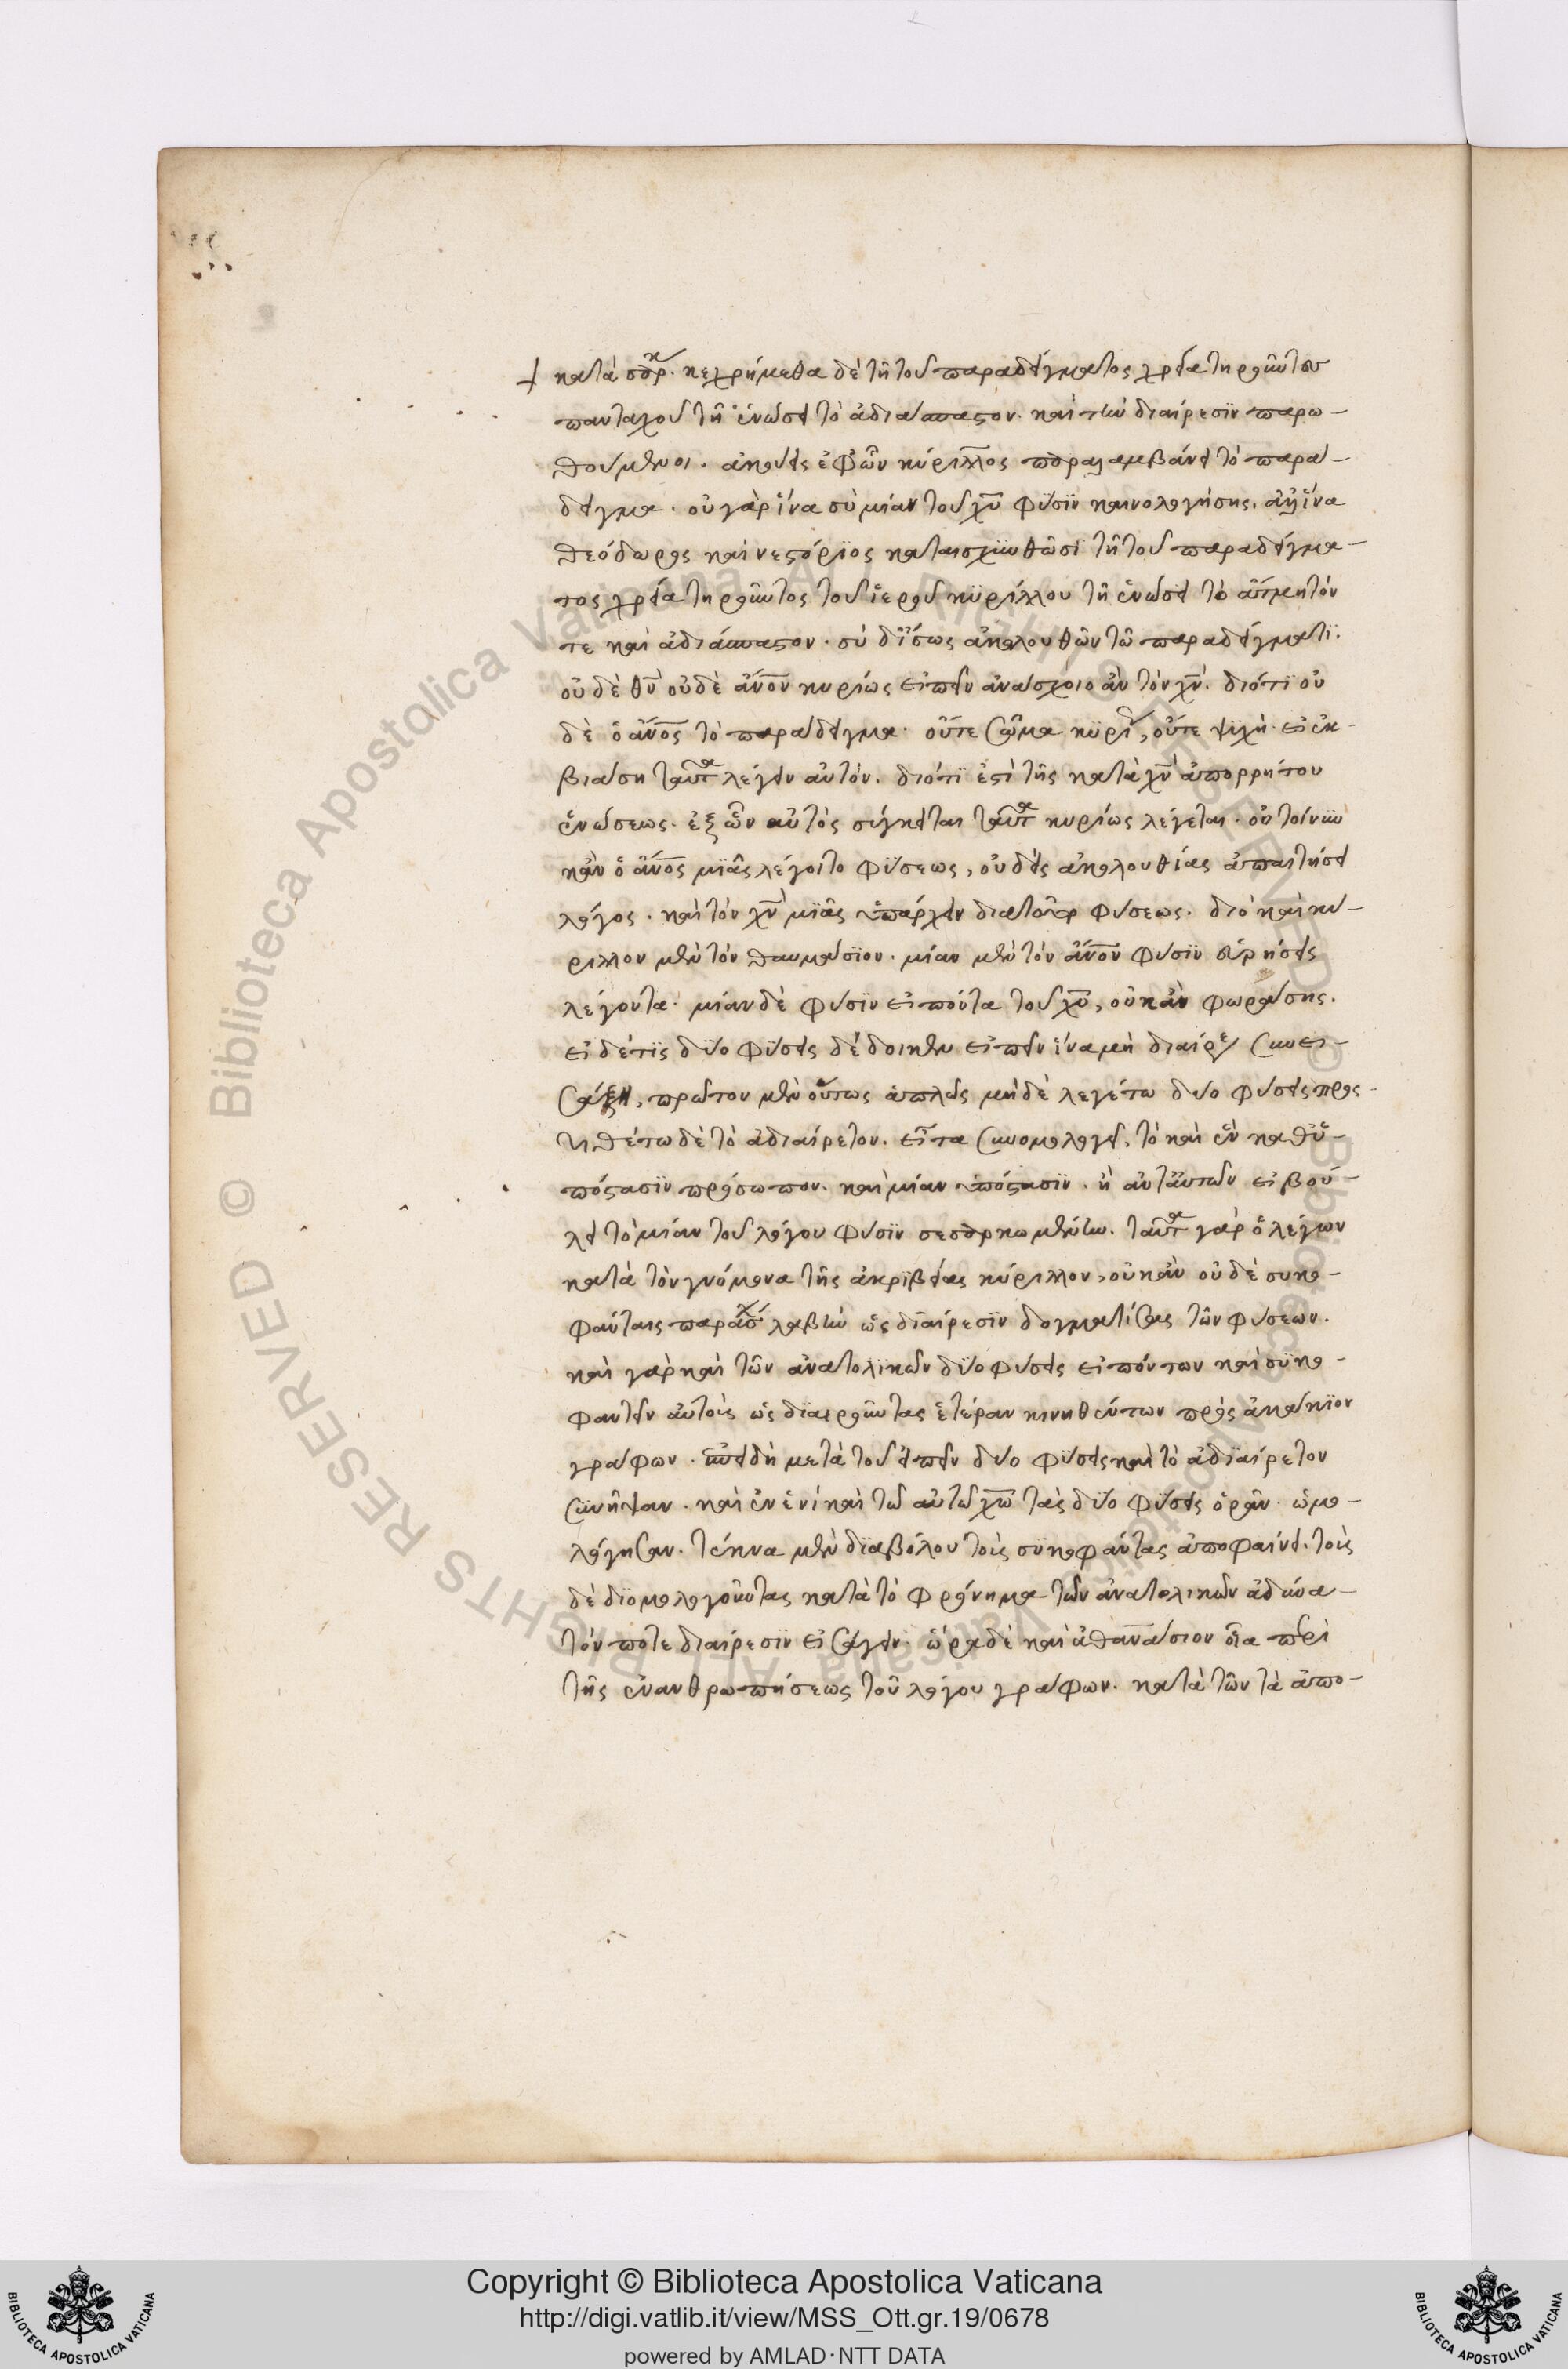 κατὰ σάρκα. κεχρήμεθα δὲ τῆ τοῦ παραδείγματος χρεία τηροῦντες
πανταχοῦ τῆ ἑνώσει τὸ ἀδιάσπαστον. καὶ τὴν διαίρεσϊν παρω-
θούμενοι. ἀκούεις ἐφ' ὧν κύριλλος παραλαμβάνει τὸ παρά-
δειγμα. οὐ γὰρ ἵνα σὺ μίαν τοῦ χῡ φύσϊν καινολογήσης. ἀλλ' ἵνα
θεόδωρος καὶ νεστόρϊος καταισχυνθῶσϊ τῆ τοῦ παραδείγμα-
τος χρεία τηροῦντος τοῦ ἱεροῦ κϋρίλλου τῆ ἑνώσει τὸ ἄτμητόν
τε καὶ ἀδιάσπαστον. σὺ δ' ἴσως ἀκολουθῶν τῶ παραδείγματϊ.
οὐδὲ θν̄ οὐδὲ ἄνον κυρίως εἰπεῖν ἀνάσχοιο ἂν τὸν χν̄. διότϊ οὐ
δὲ ὁ ἄνος τὸ παράδειγμα. οὔτε σῶμα κϋρί, οὔτε ψϋχή. εἰ ἐκ-
βιάση ταῦτα λέγειν αὐτόν. διότϊ ἐπὶ τῆς κατὰ χν̄ ἀπορρήτου
ἑνώσεως. ἐξ ὧν αὐτὸς σύγκειται ταῦτα κυρίως λέγεται. οὐ τοίνϋν
κἂν ὁ ἄνος μϊᾶς λέγοιτο φύσεως, οὐδεὶς ἀκολουθίας ἀπαιτήσει
λόγος. καὶ τὸν χν̄ μϊᾶς ὑπάρχειν διατοῦτο φύσεως. διὸ καὶ κύ-
ριλλον μὲν τὸν θαυμάσϊον. μίαν μὲν τὸν ἄνον φύσϊν εὑρήσεις
λέγοντα. μίαν δὲ φύσϊν εἰπόντα τοῦ χῡ, οὐκ ἂν φωράσης.
εἰ δέ τϊς δύο φύσεις δέδοικεν εἰπεῖν ἵνα μὴ διαίρεσιν συνει-
σάξη, πρῶτον μὲν οὕτως ἁπλῶς μηδὲ λεγέτω δύο φύσεις προσ-
τιθέτω δὲ τὸ ἀδιαίρετον. εἶτα συνομολογεῖ, τὸ καὶ ἓν καθ' ὑ-
πόστασϊν πρόσωπον. καὶ μίαν ὑπόστασϊν. ἢ ἀντ' αὐτῶν εἰ βού-
λει τὸ μίαν τοῦ λόγου φύσϊν σεσαρκωμένην. ταῦτα γὰρ ὁ λέγων
κατὰ τὸν γνώμονα τῆς ἀκριβείας κύριλλον, οὐκ ἂν οὐδὲ συκο-
φάνταις παράσχοι λαβὴν ὡς διαίρεσϊν δογματίσας τῶν φύσεων.
καὶ γὰρ καὶ τῶν ἀνατολϊκῶν δύο φύσεις εἰπόντων καὶ σϋκο-
φαντεῖν αὐτοὺς ὡς διαιροῦντας ἑτέραν κινηθέντων πρὸς ἀκάκϊον
γράφων. ἐπειδὴ μετὰ τοῦ εἰπεῖν δύο φύσεις καὶ τὸ ἀδϊαίρετον
σϋνῆψαν. καὶ ἐν ἑνὶ καὶ τῶ αὐτῶ χω̄ τὰς δύο φύσεις ὁρᾶν. ὡμο-
λόγησαν. τέκνα μὲν δϊαβόλου τοὺς σϋκοφάντας ἀποφαίνει. τοὺς
δὲ δϊομολογοῦντας κατὰ τὸ φρόνημα τῶν ἀνατολικῶν ἀδύνα-
τόν ποτε διαίρεσϊν εἰσάγειν. ὅρα δὲ καὶ ἀθανάσιον οἷα περὶ
τῆς ἐνανθρωπήσεως τοῦ λόγου γράφων. κατὰ τῶν τὰ ἀπο-
Copyright © Biblioteca Apostolica Vaticana
http://digi.vatlib.it/view/MSS_Ott.gr.19/0678
powered by AMLAD·NTT DATA